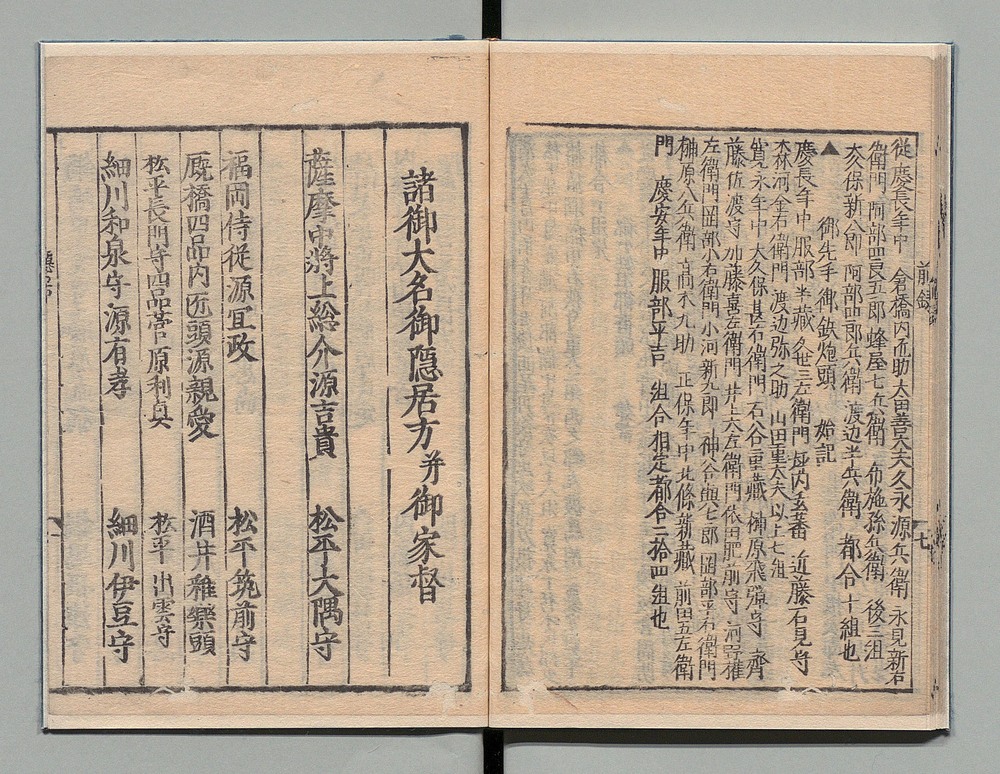 前録
従慶長年中 倉橋内匠助 太田善太夫 久永源兵衛 永見新右
衛門 阿部四良五郎 蜂屋七兵衛 布施孫兵衛 後三組
大久保新八郎 阿部四郎兵衛 渡辺半兵衛 都合十組也
▲御先手御鉄炮頭 始記
慶長年中 服部半蔵 久世三左衛門 坂内玄蕃 近藤石見守
森河金右衛門 渡辺弥之助 山田重太夫 以上七組
寛永年中 大久保甚右衛門 石谷十蔵 榊原飛弾守 齊
藤佐渡守 加藤喜左衛門 井上六左衛門 依田肥前守 河野権
左衛門 岡部小右衛門 小河新九郎 神谷與七郎 岡部平右衛門
榊原八兵衛 高木九助 正保年中 北條新蔵 前田五左衛
門 慶安年中 服部平吉 組合相定都合二拾四組也
七
諸御大名御隠居方并御家督
薩摩中將上総介源吉貴 松平大隅守
福岡侍従源宣政 松平筑前守
厩橋四品内匠頭源親愛 酒井雅樂頭
松平長門守四品菅原利真 松平出雲守
細川和泉守源有孝 細川伊豆守